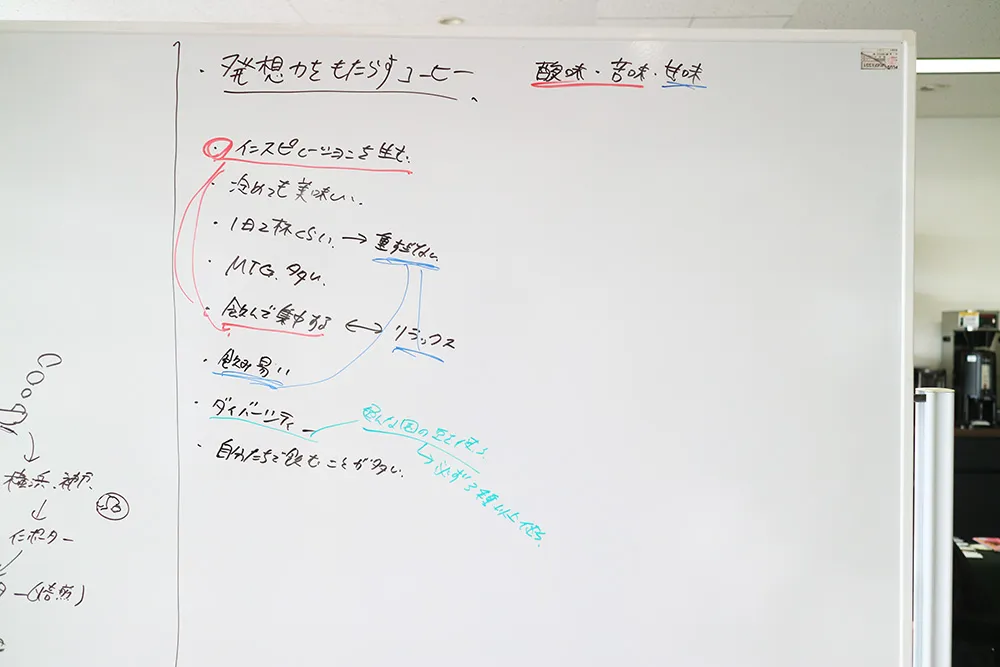 ・発想力をもたらすコーヒー 酸味・苦味・甘味
・インスピレーションを生む.
・冷めても美味しい.
・1日2杯くらい. → 重すぎない
・MTG.多い.
・飲んで集中する ↔ リラックス
・飲み易い
・ダイバーシティー
色んな国の豆を使う
↳ 必ず3種以上使う.
・自分たちで飲むことが多い.
横浜.神戸.
↓
インポーター
ター(焙煎)